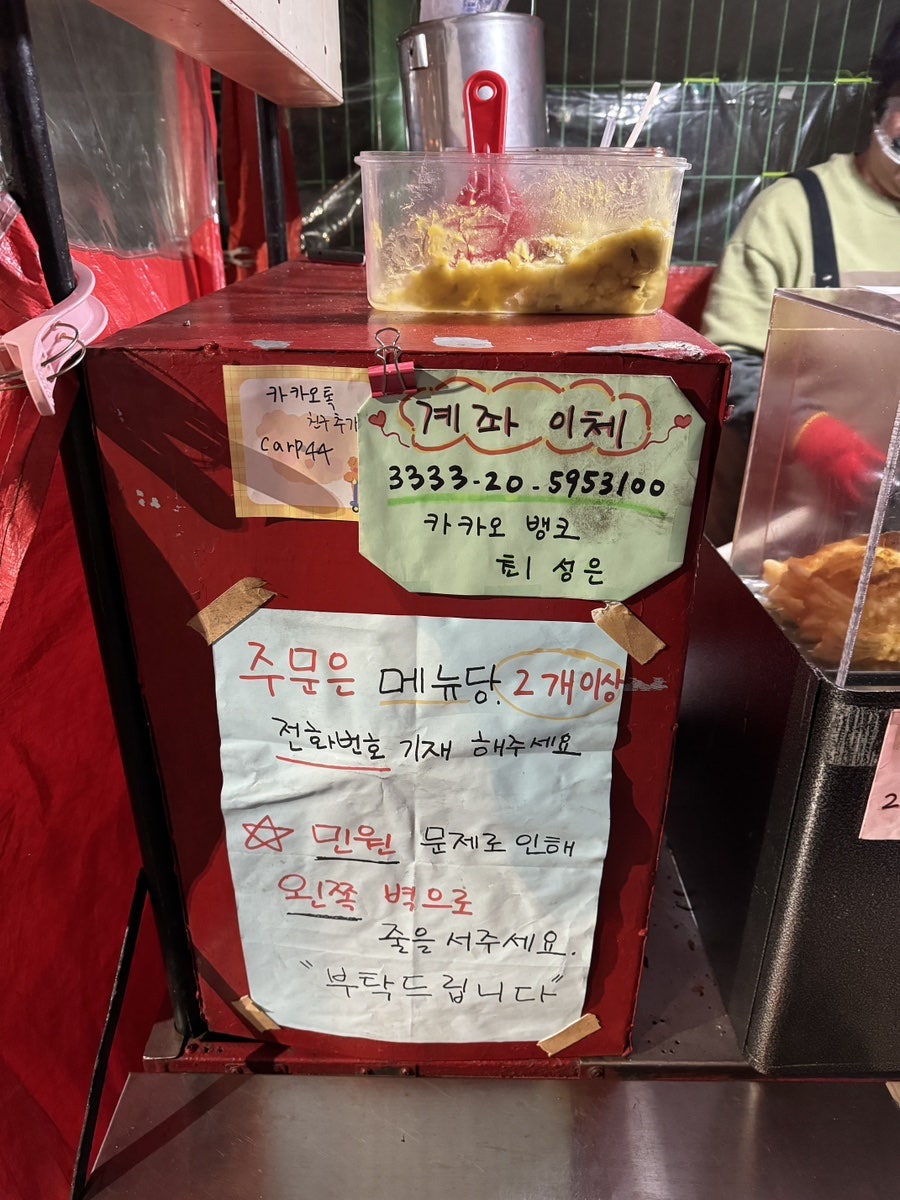 카카오톡
친구추가
carp44
계좌 이체
3333-20-5953100
카카오 뱅크
최성은
주문은 메뉴당. 2개이상
전화번호 기재 해주세요
☆ 민원 문제로 인해
왼쪽 벽으로
줄을 서주세요.
"부탁드립니다"
2